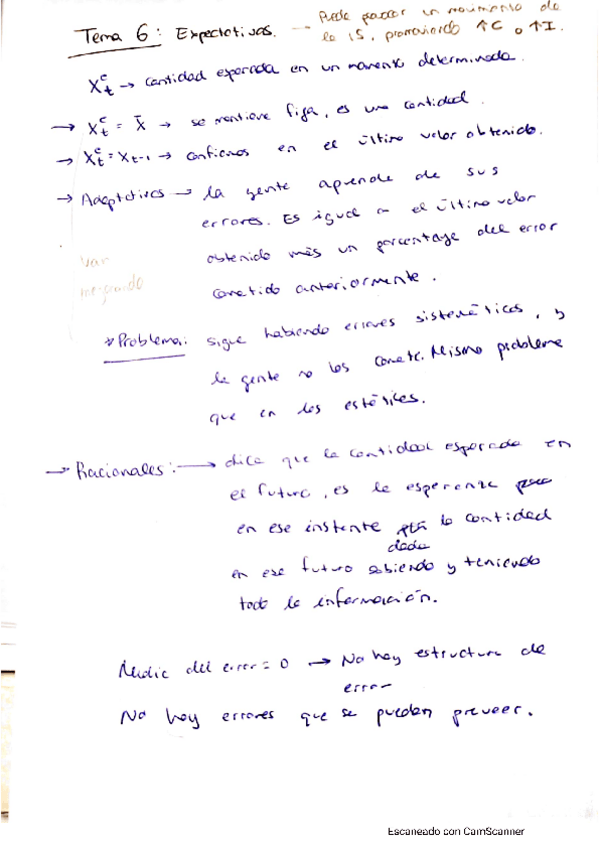 Tema 6: Expectativas. → Puede pasar un movimiento de
la IS, promoviendo ↑C o ↑I.
Xᵉt → cantidad esperada en un momento determinado.
→ Xᵉt = X̄ → se mantiene fija, es una cantidad.
→ Xᵉt = Xt-1 → confiamos en el último valor obtenido.
→ Adaptativas → la gente aprende de sus
errores. Es igual a el último valor
obtenido más un porcentaje del error
cometido anteriormente.
Van
mejorando
*Problema: sigue habiendo errores sistemáticos, y
la gente no los comete. Mismo problema
que en las estáticas.
→ Racionales: → dice que la cantidad esperada en
el futuro, es la esperanza
en ese instante la cantidad
dada
en ese futuro sabiendo y teniendo
toda la información.
Media del error = 0 → No hay estructura de
error
No hay errores que se puedan preveer.
Escaneado con CamScanner